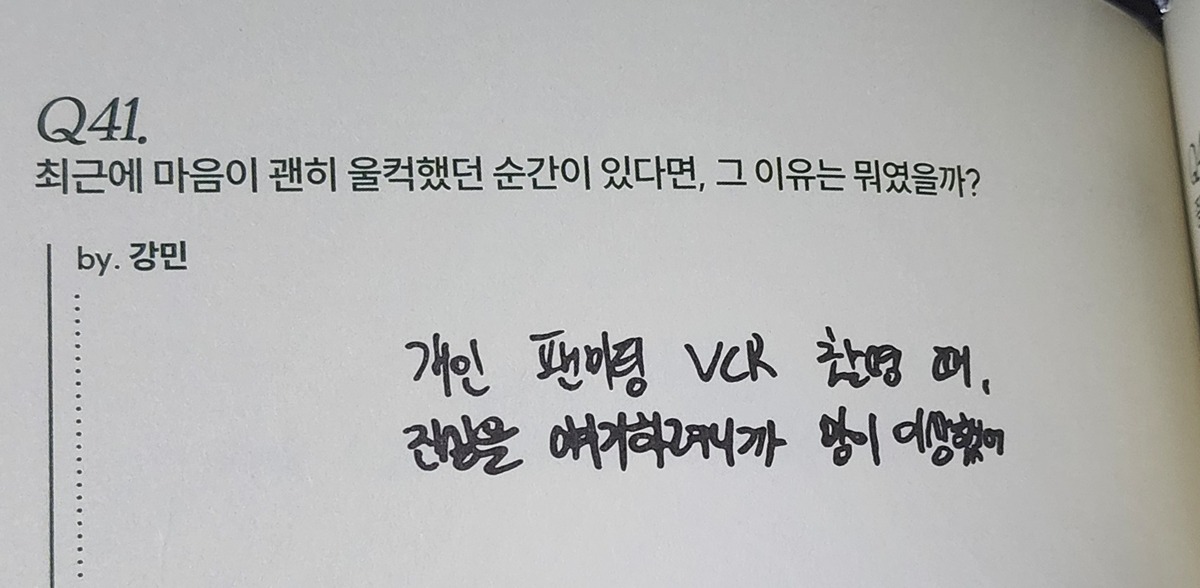 Q41.
최근에 마음이 괜히 울컥했던 순간이 있다면, 그 이유는 뭐였을까?
by. 강민
개인 팬미팅 VCR 촬영 때,
진심을 얘기하려니까 맘이 이상했어